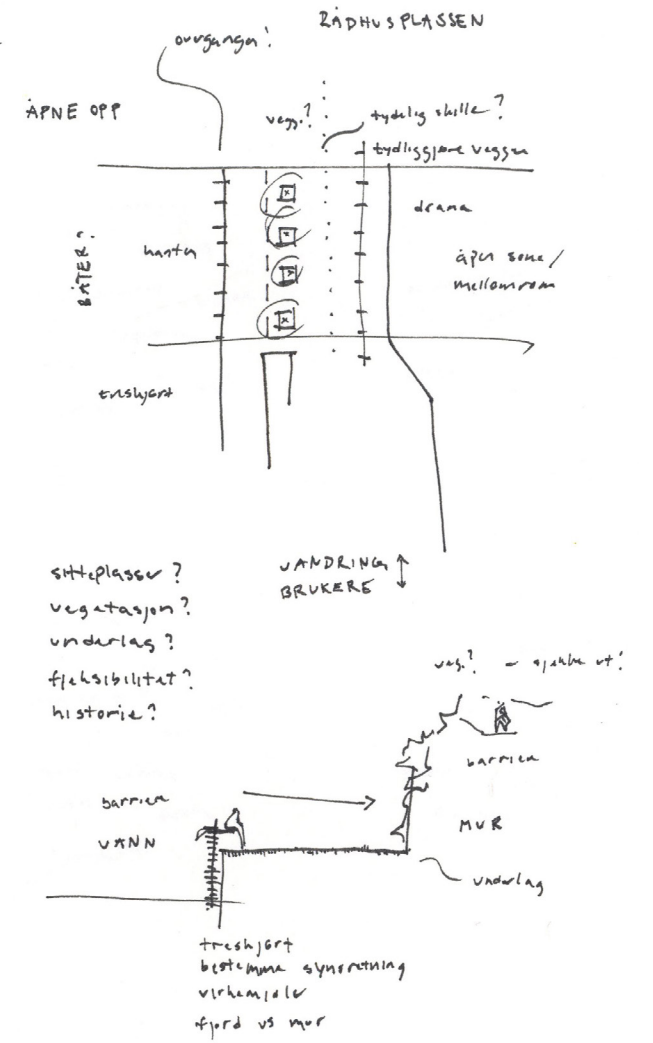 RÅDHUSPLASSEN
overganger?
ÅPNE OPP
vegg?
tydelig skille?
tydliggjøre veggen
BÅTER?
kanten
drama
åpen sone/
mellomrom
treskjørt
VANDRING
BRUKERE
sitteplasser?
vegetasjon?
underlag?
fleksibilitet?
historie?
veg.? – sjekke ut!
barriere
barriere
VANN
MUR
underlag
treskjørt
bestemme synsretning
virkemidler
fjord vs mur